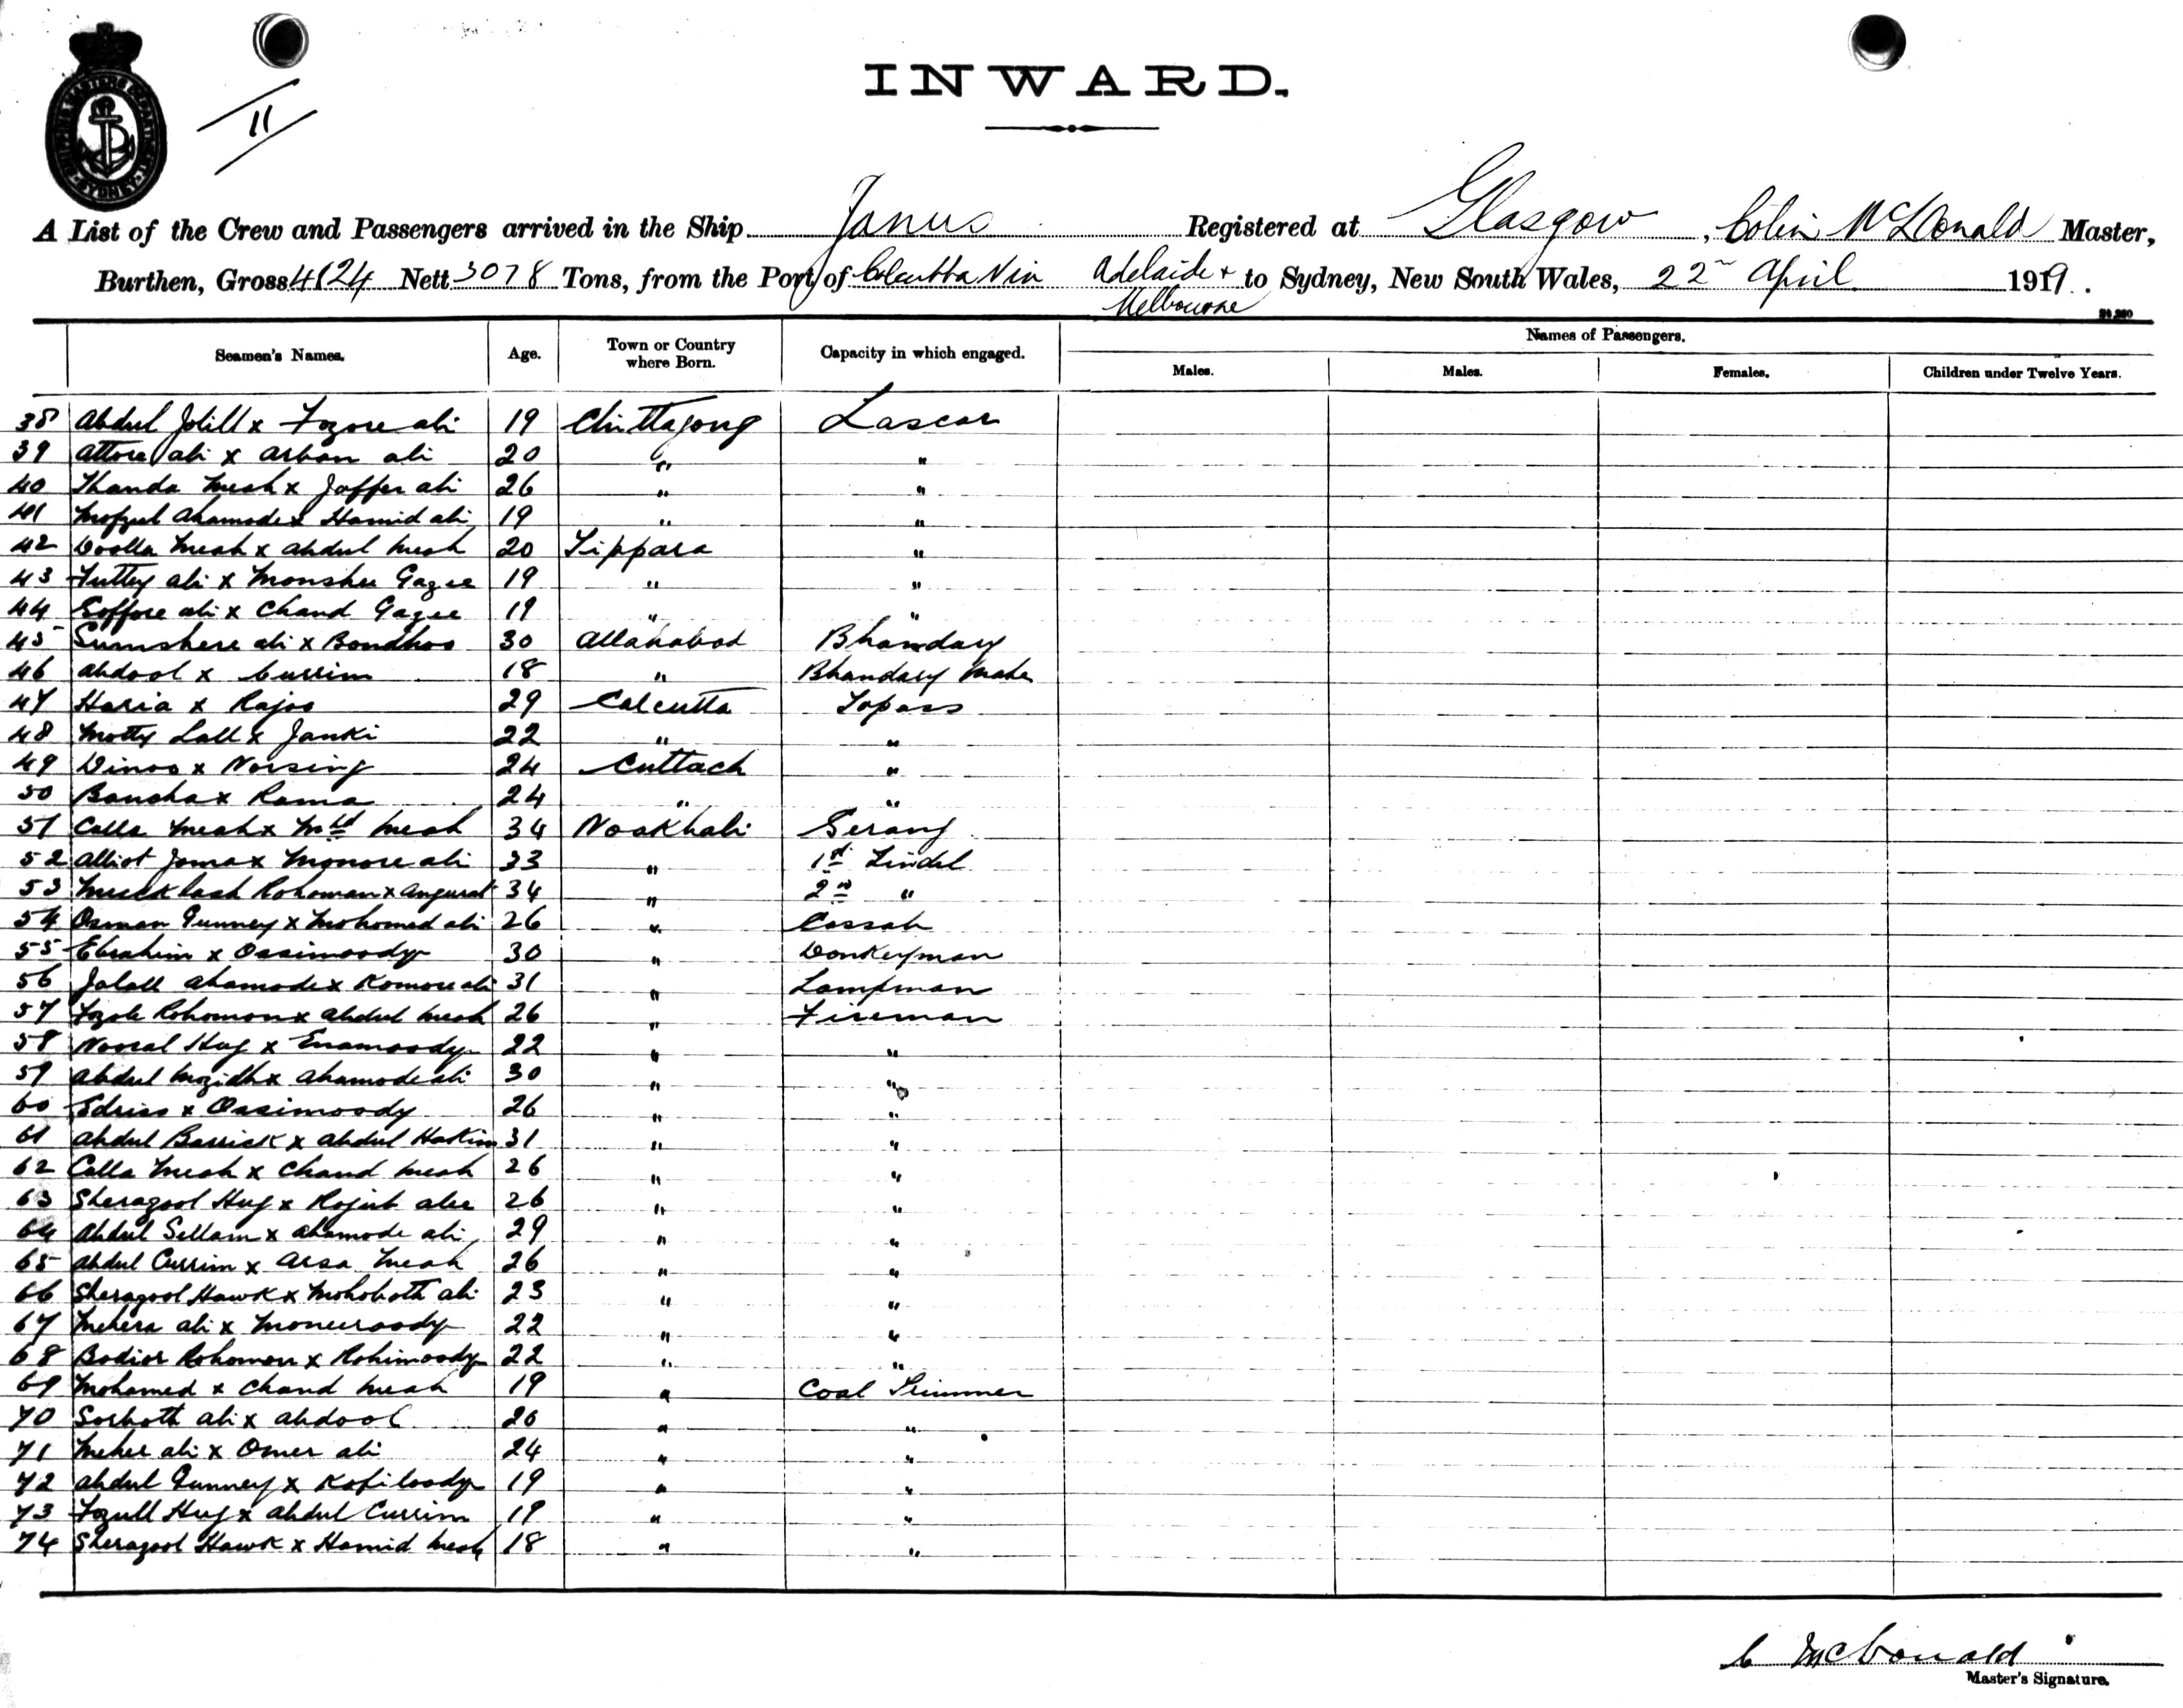 INWARD.
11
A List of the Crew and Passengers arrived in the Ship Janus Registered at Glasgow, Colin McDonald Master,
Burthen, Gross 4124 Nett 3078 Tons, from the Port of Calcutta Via Adelaide & Melbourne to Sydney, New South Wales, 22nd April 1919.
Names of Passengers.
Seamen's Names. Age. Town or Country where Born. Capacity in which engaged. Males. Males. Females. Children under Twelve Years.
38 Abdul Jolill x Fozore ali 19 Chittagong Lascar
39 Attore ali x Arban ali 20 " "
40 Thanda Meah x Joffer ali 26 " "
41 Mofzul Ahamode x Hamid ali 19 " "
42 Doolla Meah x Abdul Meah 20 Tippara "
43 Futtey ali x Monshee Gazee 19 " "
44 Goffore ali x Chand Gazee 19 " "
45 Sumshere ali x Bondhoo 30 Allahabad Bhandary
46 Abdool x Currim 18 " Bhandary Mate
47 Haria x Rajoo 29 Calcutta Topass
48 Motty Lall x Janki 22 " "
49 Dinoo x Norsing 24 Cuttack "
50 Bancha x Rama 24 " "
51 Calla Meah x Mhd Meah 34 Noakhali Serang
52 Alliot Joma x Monore ali 33 " 1st Tindel
53 Rohoman x Angurat 34 " 2nd "
54 Osman Gunney x Mohomed ali 26 " Cassab
55 Ebrahim x Ossimoody 30 " Donkeyman
56 Jolall Ahamode x Komore ali 31 " Lampman
57 Fozle Rohomon x Abdul Meah 26 " Fireman
58 Nooral Huq x Enamoody 22 " "
59 Abdul Mozidh x Ahamode ali 30 " "
60 Edriss x Ossimoody 26 " "
61 Abdul Barrick x Abdul Hakim 31 " "
62 Calla Meah x Chand Meah 26 " "
63 Sheragool Huq x Rojub alee 26 " "
64 Abdul Sellam x Ahamode ali 29 " "
65 Abdul Currim x Arsa Meah 26 " "
66 Sheragool Hawk x Mohoboth ali 23 " "
67 Mehera ali x Moneeroody 22 " "
68 Bodior Rohoman x Rohimoody 22 " "
69 Mohamed x Chand Meah 19 " Coal Trimmer
70 Sorboth ali x Abdool 20 " "
71 Meher ali x Omer ali 24 " "
72 Abdul Gunney x Kofiloody 19 " "
73 Fozull Huq x Abdul Currim 19 " "
74 Sheragool Hawk x Hamid Meah 18 " "
C McDonald
Master's Signature.